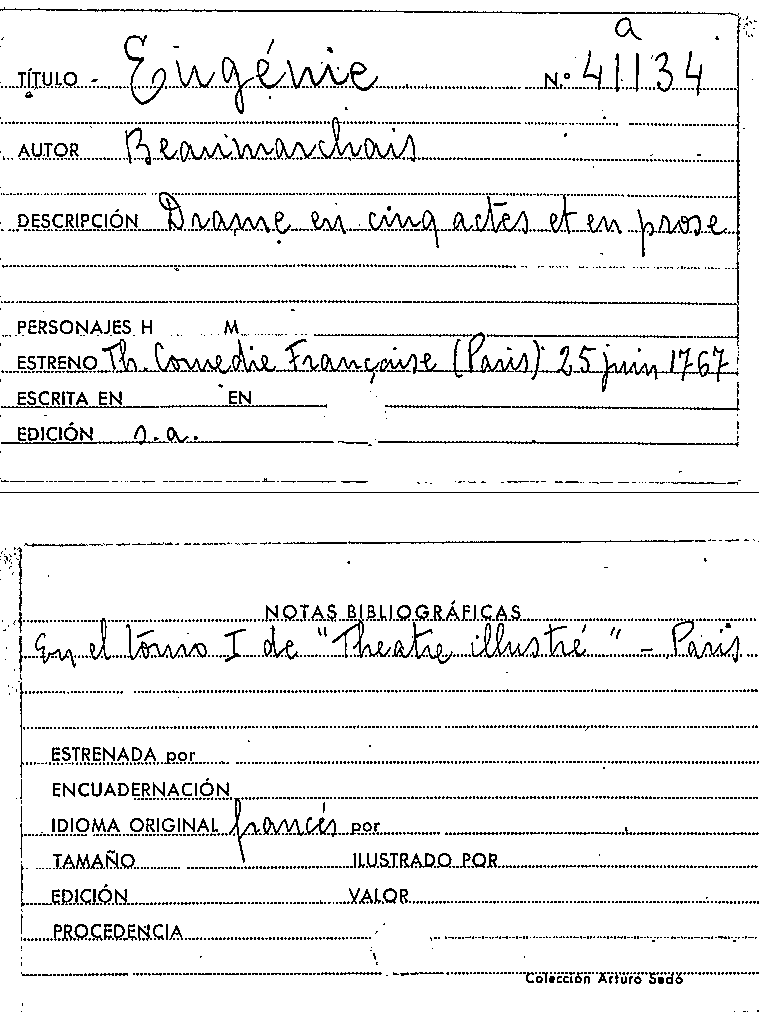 a
TÍTULO - Eugénie N.º 41134
AUTOR Beaumarchais
DESCRIPCIÓN Drame en cinq actes et en prose
PERSONAJES H M
ESTRENO Th. Comedie Française (Paris) 25 juin 1767
ESCRITA EN EN
EDICIÓN s.a.
NOTAS BIBLIOGRÁFICAS
En el tomo I de "Theatre illustré" - Paris
ESTRENADA por
ENCUADERNACIÓN
IDIOMA ORIGINAL francés por
TAMAÑO ILUSTRADO POR
EDICIÓN VALOR
PROCEDENCIA
Colección Arturo Sedó